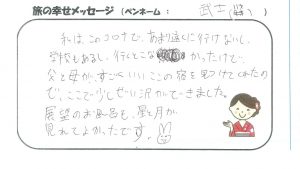 旅の幸せメッセージ (ペンネーム: 武士
私は、このコロナで、あまり遠くに行けないし、
学校もあるし、行くとこな かったけど、
父と母が、すごくいいこの宿を見つけてくれたの
で、ここで少しぜい沢ができました。
展望のお風呂も、星と月が、
見れてよかったです。